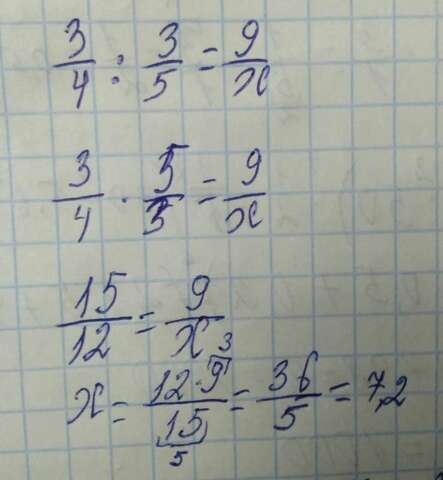 3/4 : 3/5 = 9/x
3/4 · 5/3 = 9/x
15/12 = 9/x
x = 12·9³/15₅ = 36/5 = 7,2